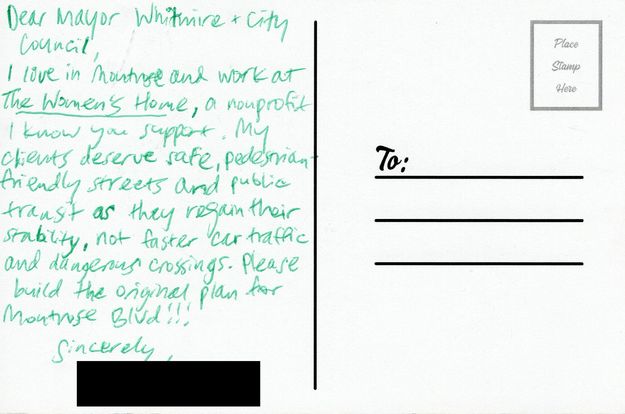 Dear Mayor Whitmire + City
Council,
I live in Montrose and work at
The Women's Home, a nonprofit
I know you support. My
clients deserve safe, pedestrian-
friendly streets and public
transit as they regain their
stability, not faster car traffic
and dangerous crossings. Please
build the original plan for
Montrose Blvd!!!
Sincerely,
Place
Stamp
Here
To: